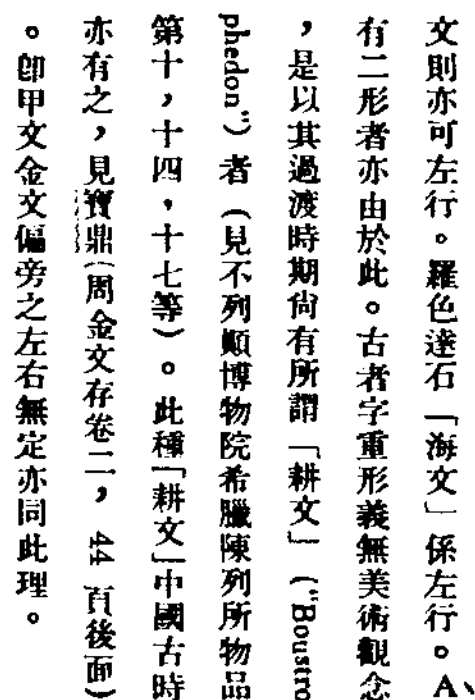 文則亦可左行。羅色達石「海文」係左行。A、
有二形者亦由於此。古者字重形義無美術觀念
，是以其過渡時期尙有所謂「耕文」（"Boustro
phedon"）者（見不列顚博物院希臘陳列所物品
第十，十四，十七等）。此種「耕文」中國古時
亦有之，見寶鼎（周金文存卷二，44頁後面）
。卽甲文金文偏旁之左右無定亦同此理。